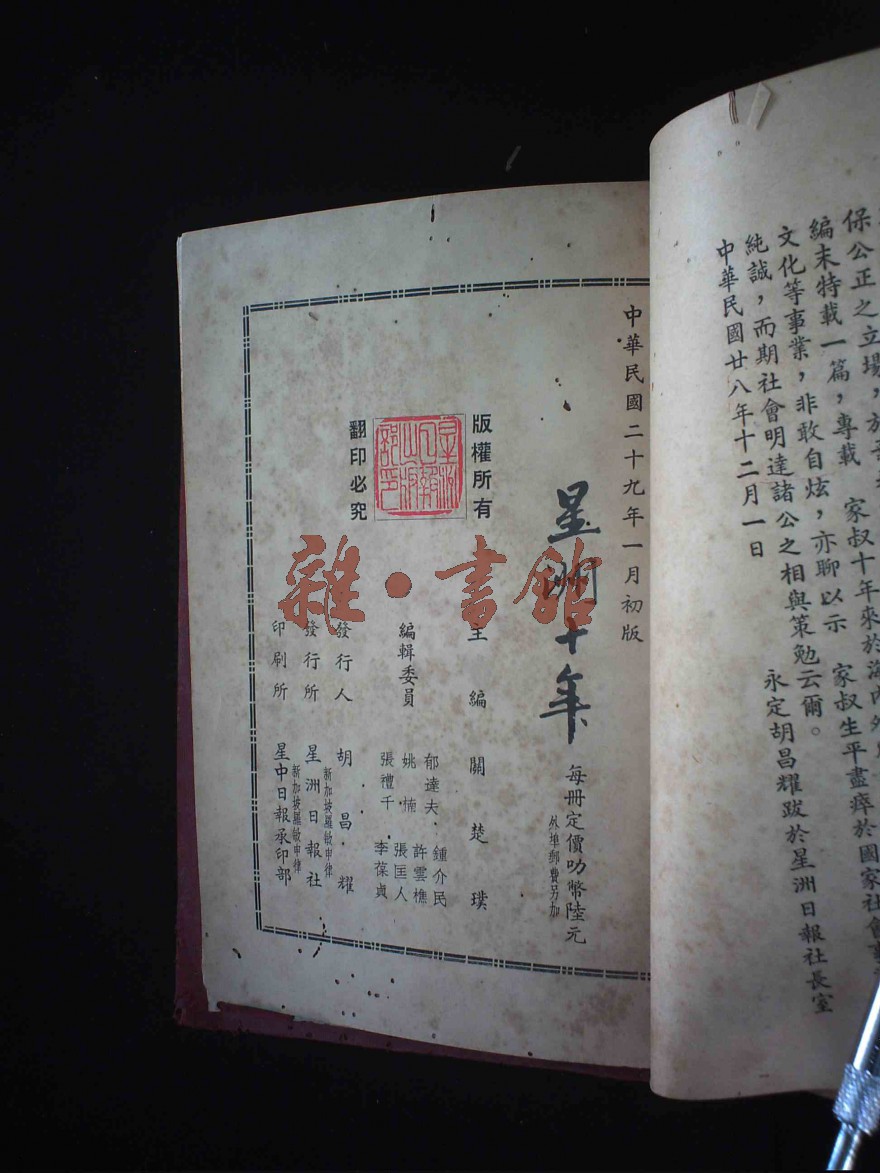 保公正之立場，於
編末特載一篇，專載　家叔十年來於海內外
文化等事業，非敢自炫，亦聊以示　家叔生平盡瘁於國家社會
純誠，而期社會明達諸公之相與策勉云爾。
中華民國廿八年十二月一日　永定胡昌耀跋於星洲日報社長室
中華民國二十九年一月初版
星洲十年
每冊定價叻幣陸元
外埠郵費另加
版權所有
星洲日報出版部印
翻印必究
主編　關楚璞
編輯委員
郁達夫．鍾介民
姚楠　許雲樵
張匡人
張禮千．李葆貞
發行人　胡昌耀
新加坡羅敏申律
發行所　星洲日報社
新加坡羅敏申律
印刷所　星中日報承印部
雜·書館